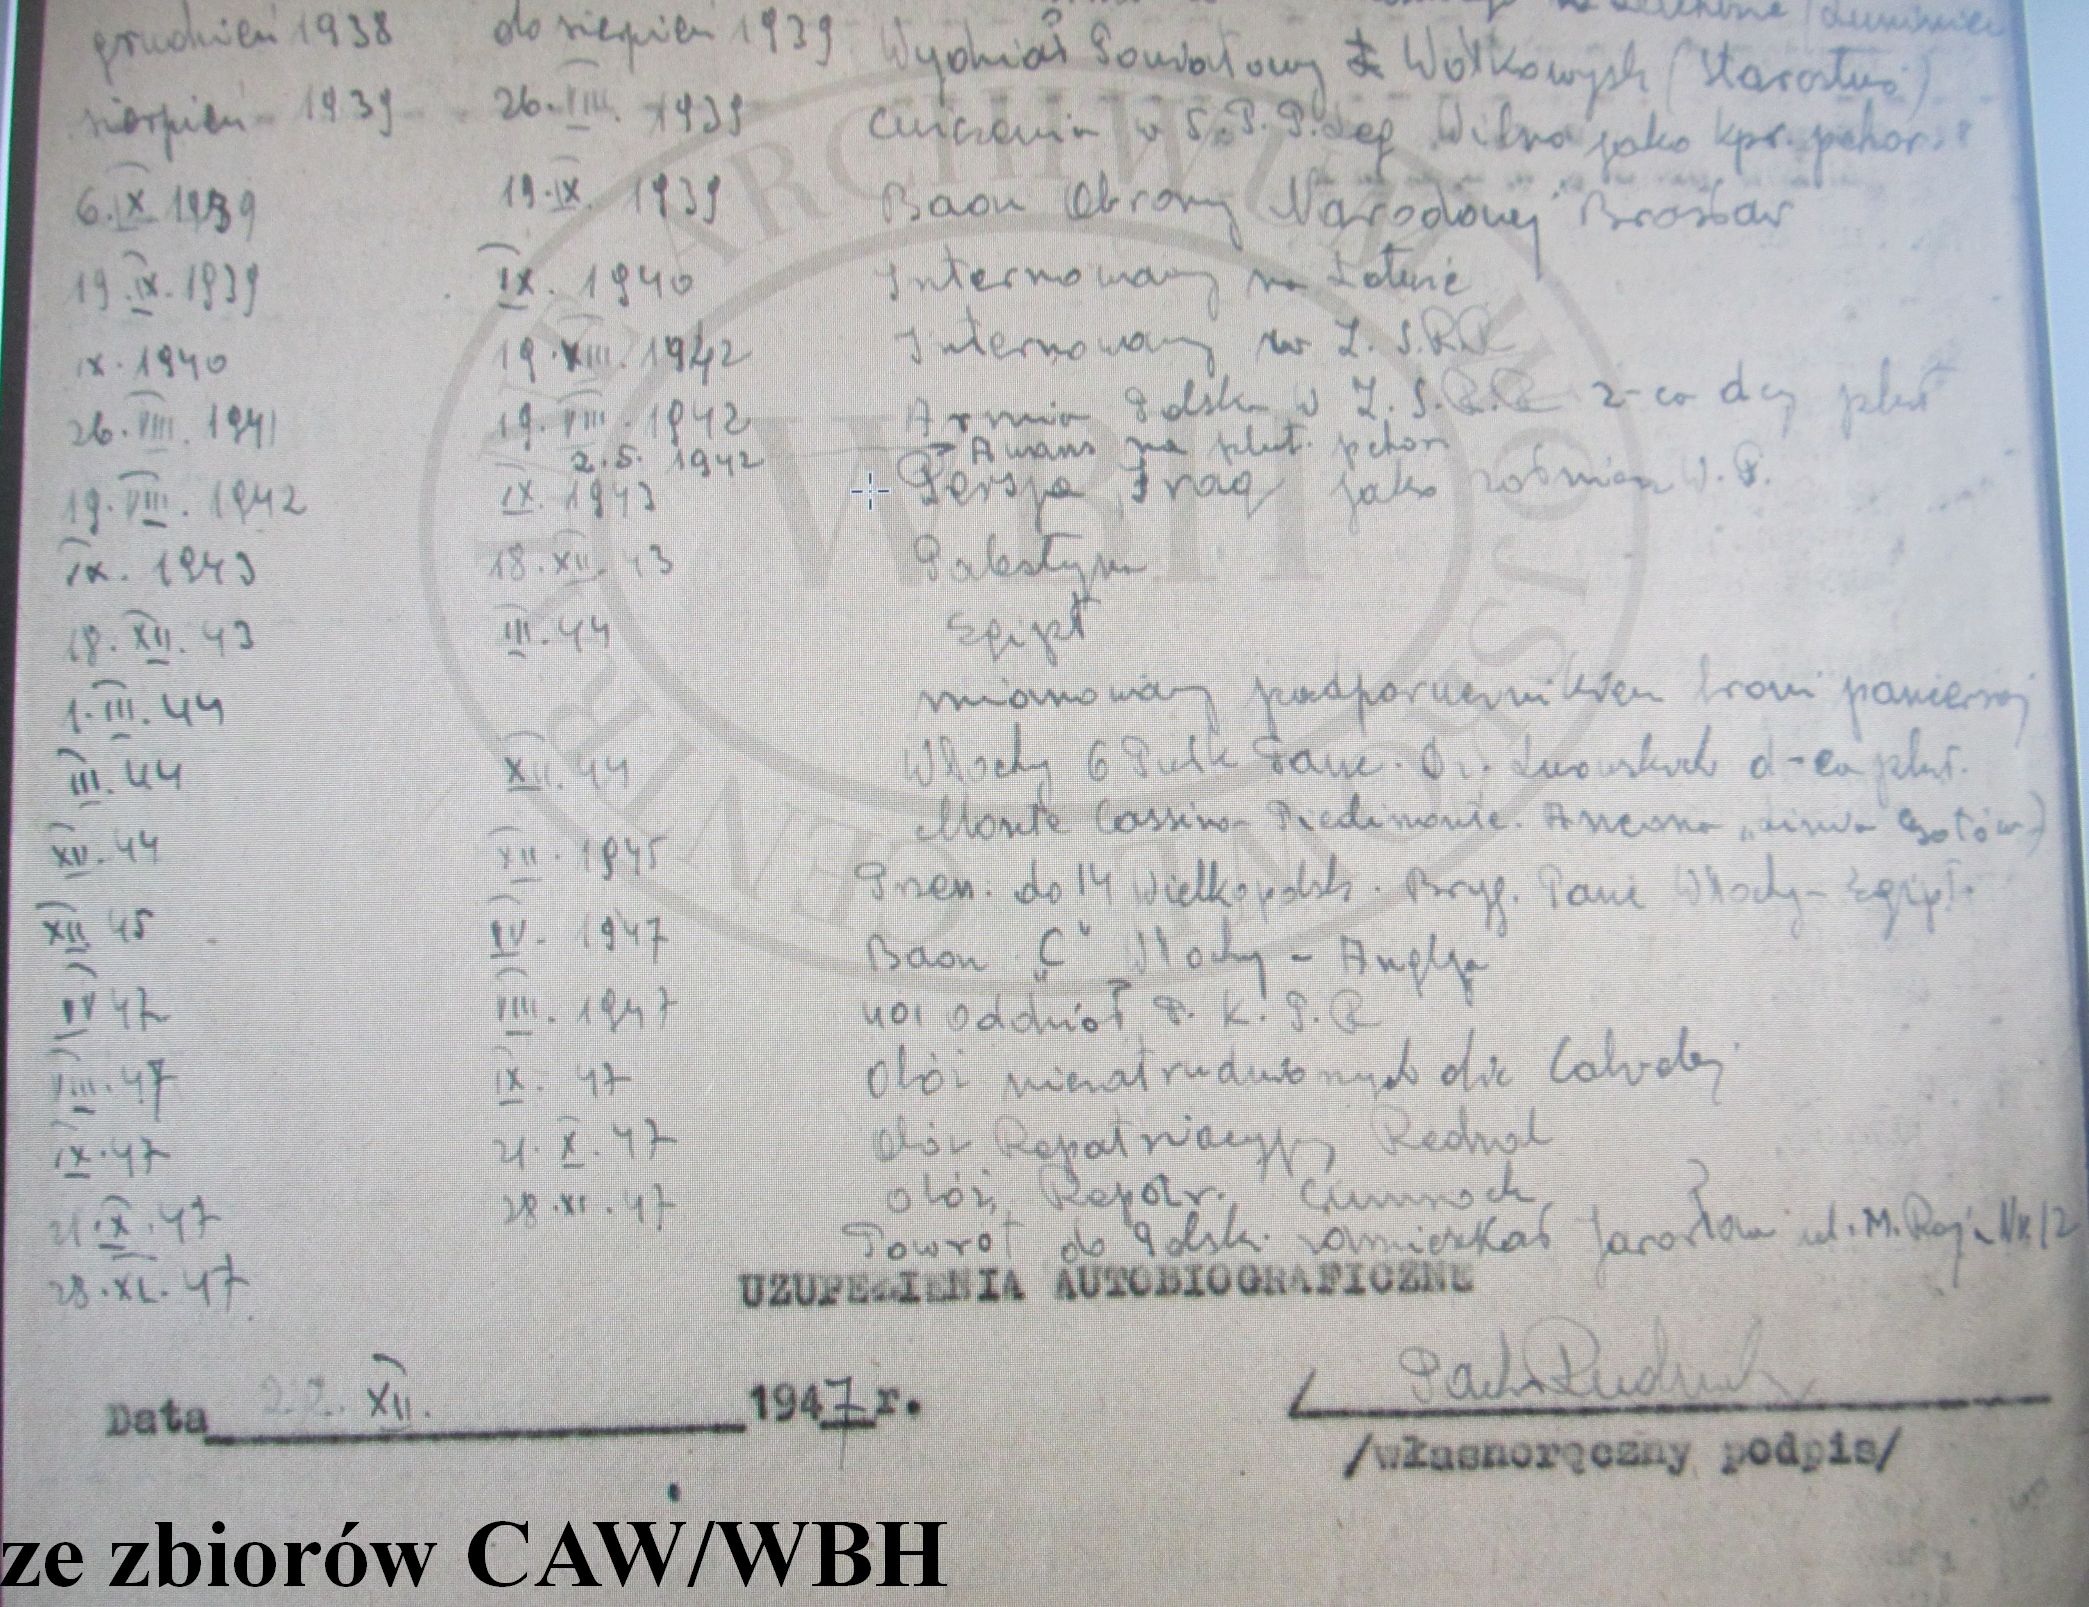 grudzień 1938 do sierpień 1939 Wydział Powiatowy Wołkowysk (Starostwo)
sierpień - 1939 - 26.VIII. 1939 ćwiczenia w 5.P.P.Leg Wilno jako kpr. pchor.
6.IX 1939 19.IX. 1939 Baon Obrony Narodowej Brasław
19.IX.1939 IX. 1940 Internowany na Łotwie
IX.1940 19.XIII.1942 Internowany w Z.S.R.R
26.VIII.1941 19.VIII.1942 Armia Polska w Z.S.R.R z-ca dcy plut
2.5.1942 Awans na plut. pchor
19.VIII.1942 IX.1943 Persja, Iraq jako W.P.
IX.1943 18.XII.43 Palestyna
18.XII.43 III.44 Egipt
1.III.44 mianowany podporucznikiem broni pancernej
III.44 XII.44 Włochy 6 Pułk Panc. Dz. Lwowskich d-ca plut.
Monte Cassino - Piedimonte. Ancona "Linia Gotów")
XII.44 XII.1945 Przen. do 14 Wielkopolsk. Bryg. Panc Włochy - Egipt.
XII 45 IV.1947 Baon "C" Włochy - Anglja
IV 47 VIII.1947 401 oddział P.K.P.R
VIII.47 IX.47 Obóz niezatrudnionych
IX.47 21.X.47 Obóz Repatriacyjny Rednal
21.X.47 28.XI.47 obóz Repatr. Cumnock
28.XI.47 Powrót do Polski zamieszkał Jarosław ul. M. Raja Nr. 12
UZUPEŁNIENIA AUTOBIOGRAFICZNE
Data 22. XII. 1947 r.
/własnoręczny podpis/
ze zbiorów CAW/WBH
ARCHIWUM
WOJSKOWE
CENTRALNE
WBH